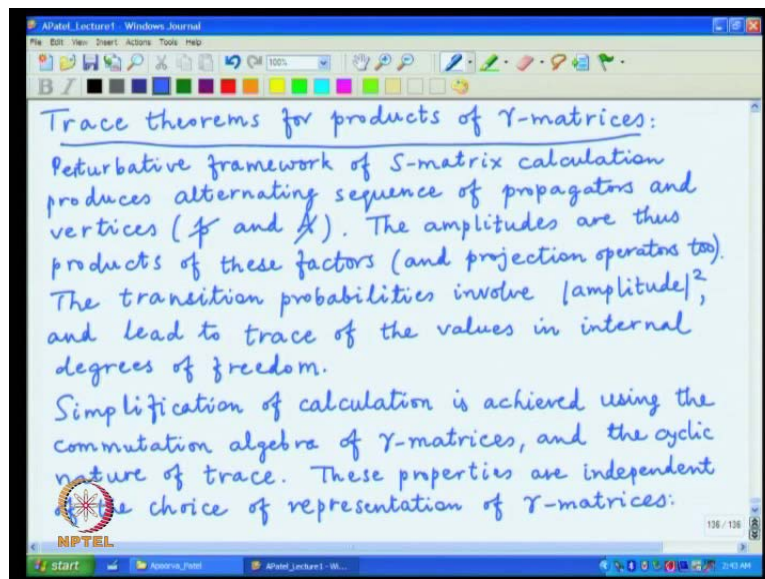 APatel_Lecture1 - Windows Journal
File Edit View Insert Actions Tools Help
100%
B I
Trace theorems for products of γ-matrices:
Perturbative framework of S-matrix calculation
produces alternating sequence of propagators and
vertices (p̸ and A̸). The amplitudes are thus
products of these factors (and projection operators too).
The transition probabilities involve |amplitude|²,
and lead to trace of the values in internal
degrees of freedom.
Simplification of calculation is achieved using the
commutation algebra of γ-matrices, and the cyclic
nature of trace. These properties are independent
of the choice of representation of γ-matrices:
136 / 136
NPTEL
start Apoorva_Patel APatel_Lecture1 - Wi... 2:43 AM